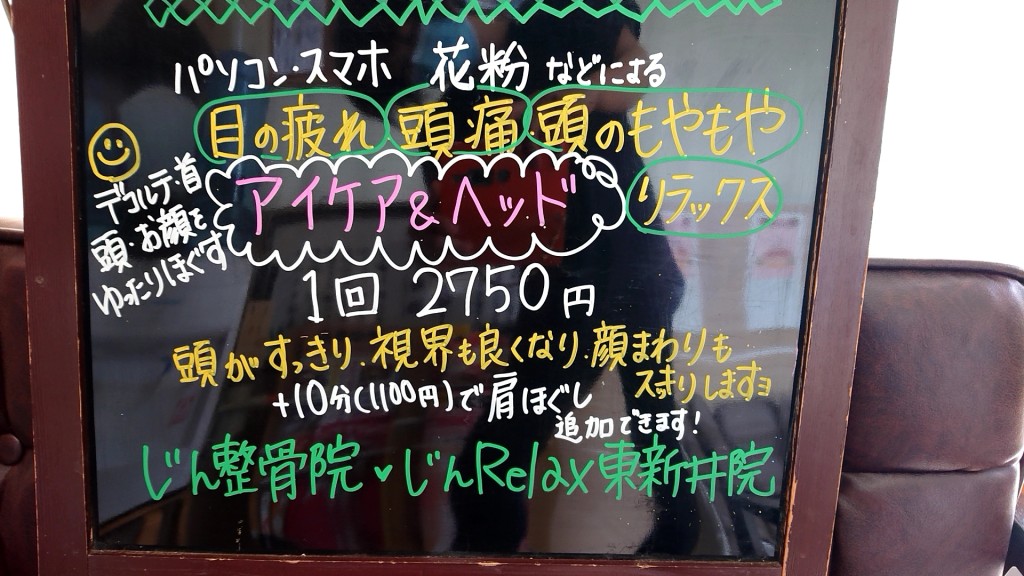 パソコン・スマホ 花粉 などによる
目の疲れ 頭痛 頭のもやもや
デコルテ・首
頭・お顔を
ゆったりほぐす
アイケア&ヘッド
リラックス
1回 2750円
頭がすっきり・視界も良くなり・顔まわりも
スッキリしますョ
+10分(1100円)で肩ほぐし
追加できます!
じん整骨院♥じんRelax東新井院